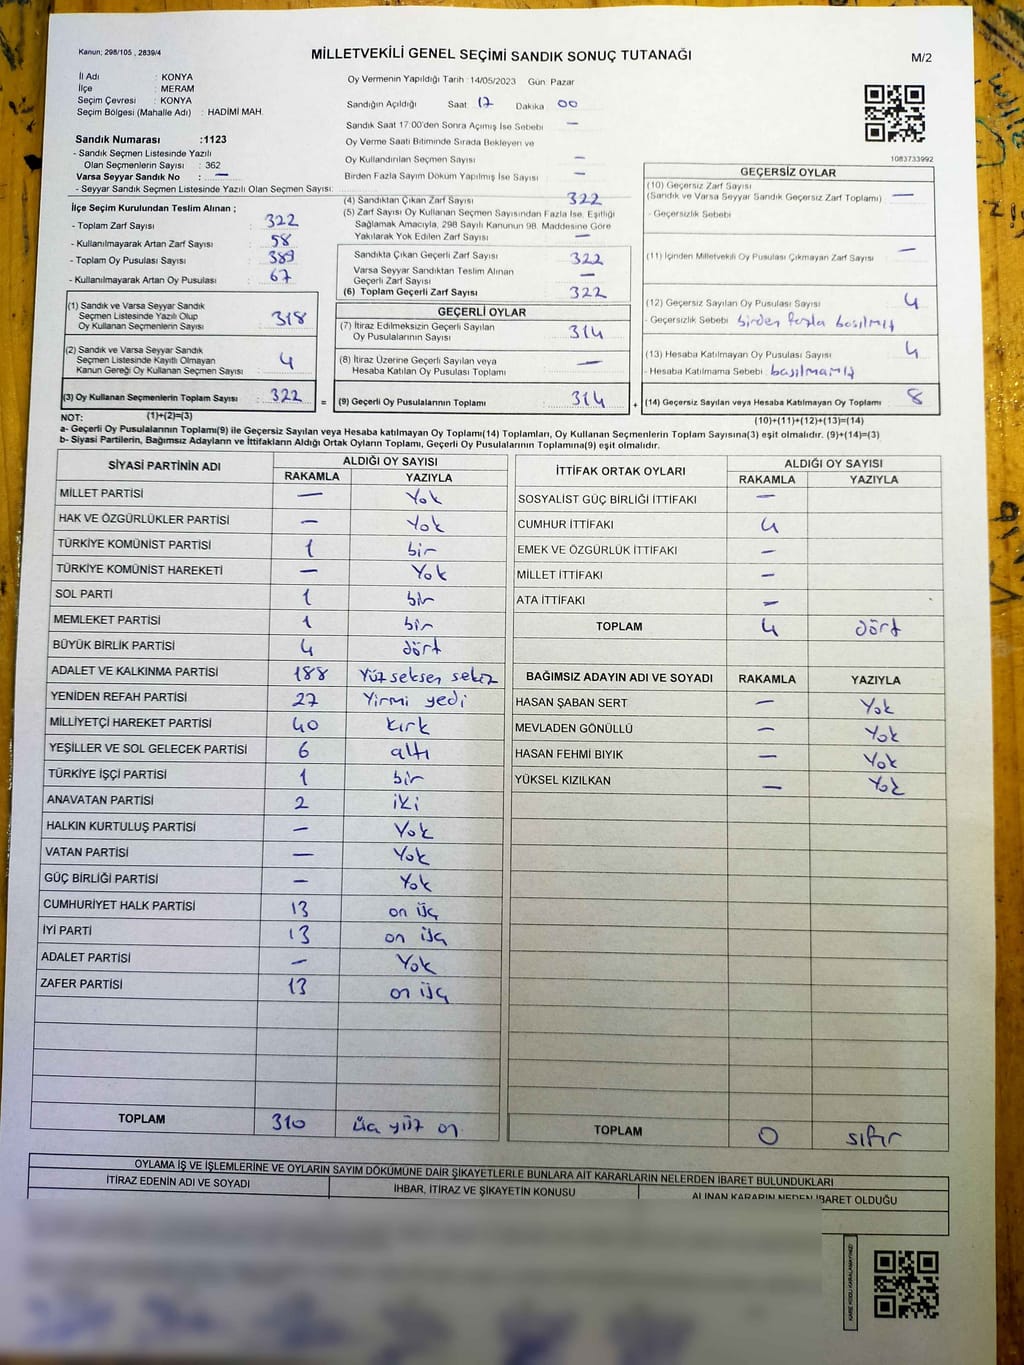 Kanun; 298/105 , 2839/4
MİLLETVEKİLİ GENEL SEÇİMİ SANDIK SONUÇ TUTANAĞI
M/2
İl Adı : KONYA
İlçe : MERAM
Seçim Çevresi : KONYA
Seçim Bölgesi (Mahalle Adı) : HADİMİ MAH.
Sandık Numarası :1123
- Sandık Seçmen Listesinde Yazılı
Olan Seçmenlerin Sayısı : 362
Varsa Seyyar Sandık No : —
- Seyyar Sandık Seçmen Listesinde Yazılı Olan Seçmen Sayısı:
Oy Vermenin Yapıldığı Tarih :14/05/2023 Gün: Pazar
Sandığın Açıldığı Saat 17 Dakika 00
Sandık Saat 17:00'den Sonra Açımış İse Sebebi —
Oy Verme Saati Bitiminde Sırada Bekleyen ve
Oy Kullandırılan Seçmen Sayısı —
Birden Fazla Sayım Döküm Yapılmış İse Sayısı —
1083733992
İlçe Seçim Kurulundan Teslim Alınan ;
- Toplam Zarf Sayısı : 322
- Kullanılmayarak Artan Zarf Sayısı : 58
- Toplam Oy Pusulası Sayısı : 389
- Kullanılmayarak Artan Oy Pusulası : 67
(1) Sandık ve Varsa Seyyar Sandık
Seçmen Listesinde Yazılı Olup
Oy Kullanan Seçmenlerin Sayısı : 318
(2) Sandık ve Varsa Seyyar Sandık
Seçmen Listesinde Kayıtlı Olmayan
Kanun Gereği Oy Kullanan Seçmen Sayısı : 4
(3) Oy Kullanan Seçmenlerin Toplam Sayısı : 322 =
(4) Sandıktan Çıkan Zarf Sayısı 322
(5) Zarf Sayısı Oy Kullanan Seçmen Sayısından Fazla İse, Eşitliği
Sağlamak Amacıyla, 298 Sayılı Kanunun 98. Maddesine Göre
Yakılarak Yok Edilen Zarf Sayısı —
Sandıkta Çıkan Geçerli Zarf Sayısı 322
Varsa Seyyar Sandıktan Teslim Alınan
Geçerli Zarf Sayısı —
(6) Toplam Geçerli Zarf Sayısı 322
GEÇERLİ OYLAR
(7) İtiraz Edilmeksizin Geçerli Sayılan
Oy Pusulalarının Sayısı : 314
(8) İtiraz Üzerine Geçerli Sayılan veya
Hesaba Katılan Oy Pusulası Toplamı : —
(9) Geçerli Oy Pusulalarının Toplamı : 314 +
GEÇERSİZ OYLAR
(10) Geçersiz Zarf Sayısı
(Sandık ve Varsa Seyyar Sandık Geçersiz Zarf Toplamı) —
- Geçersizlik Sebebi
(11) İçinden Milletvekili Oy Pusulası Çıkmayan Zarf Sayısı —
(12) Geçersiz Sayılan Oy Pusulası Sayısı 4
- Geçersizlik Sebebi birden fazla basılmış
(13) Hesaba Katılmayan Oy Pusulası Sayısı 4
- Hesaba Katılmama Sebebi basılmamış
(14) Geçersiz Sayılan veya Hesaba Katılmayan Oy Toplamı 8
NOT: (1)+(2)=(3)
(10)+(11)+(12)+(13)=(14)
a- Geçerli Oy Pusulalarının Toplamı(9) ile Geçersiz Sayılan veya Hesaba katılmayan Oy Toplamı(14) Toplamları, Oy Kullanan Seçmenlerin Toplam Sayısına(3) eşit olmalıdır. (9)+(14)=(3)
b- Siyasi Partilerin, Bağımsız Adayların ve İttifakların Aldığı Ortak Oyların Toplamı, Geçerli Oy Pusulalarının Toplamına(9) eşit olmalıdır.
SİYASİ PARTİNİN ADI ALDIĞI OY SAYISI
RAKAMLA YAZIYLA
MİLLET PARTİSİ — Yok
HAK VE ÖZGÜRLÜKLER PARTİSİ — Yok
TÜRKİYE KOMÜNİST PARTİSİ 1 bir
TÜRKİYE KOMÜNİST HAREKETİ — Yok
SOL PARTİ 1 bir
MEMLEKET PARTİSİ 1 bir
BÜYÜK BİRLİK PARTİSİ 4 dört
ADALET VE KALKINMA PARTİSİ 188 Yüz seksen sekiz
YENİDEN REFAH PARTİSİ 27 Yirmi yedi
MİLLİYETÇİ HAREKET PARTİSİ 40 kırk
YEŞİLLER VE SOL GELECEK PARTİSİ 6 altı
TÜRKİYE İŞÇİ PARTİSİ 1 bir
ANAVATAN PARTİSİ 2 iki
HALKIN KURTULUŞ PARTİSİ — Yok
VATAN PARTİSİ — Yok
GÜÇ BİRLİĞİ PARTİSİ — Yok
CUMHURİYET HALK PARTİSİ 13 on üç
İYİ PARTİ 13 on üç
ADALET PARTİSİ — Yok
ZAFER PARTİSİ 13 on üç
TOPLAM 310 üç yüz on
İTTİFAK ORTAK OYLARI ALDIĞI OY SAYISI
RAKAMLA YAZIYLA
SOSYALİST GÜÇ BİRLİĞİ İTTİFAKI —
CUMHUR İTTİFAKI 4
EMEK VE ÖZGÜRLÜK İTTİFAKI —
MİLLET İTTİFAKI —
ATA İTTİFAKI —
TOPLAM 4 dört
BAĞIMSIZ ADAYIN ADI VE SOYADI RAKAMLA YAZIYLA
HASAN ŞABAN SERT — Yok
MEVLADEN GÖNÜLLÜ — Yok
HASAN FEHMİ BIYIK — Yok
YÜKSEL KIZILKAN — Yok
TOPLAM 0 sıfır
OYLAMA İŞ VE İŞLEMLERİNE VE OYLARIN SAYIM DÖKÜMÜNE DAİR ŞİKAYETLERLE BUNLARA AİT KARARLARIN NELERDEN İBARET BULUNDUKLARI
İTİRAZ EDENİN ADI VE SOYADI İHBAR, İTİRAZ VE ŞİKAYETİN KONUSU ALINAN KARARIN NEDEN İBARET OLDUĞU
KARE KODU KARALAMAYINIZ!